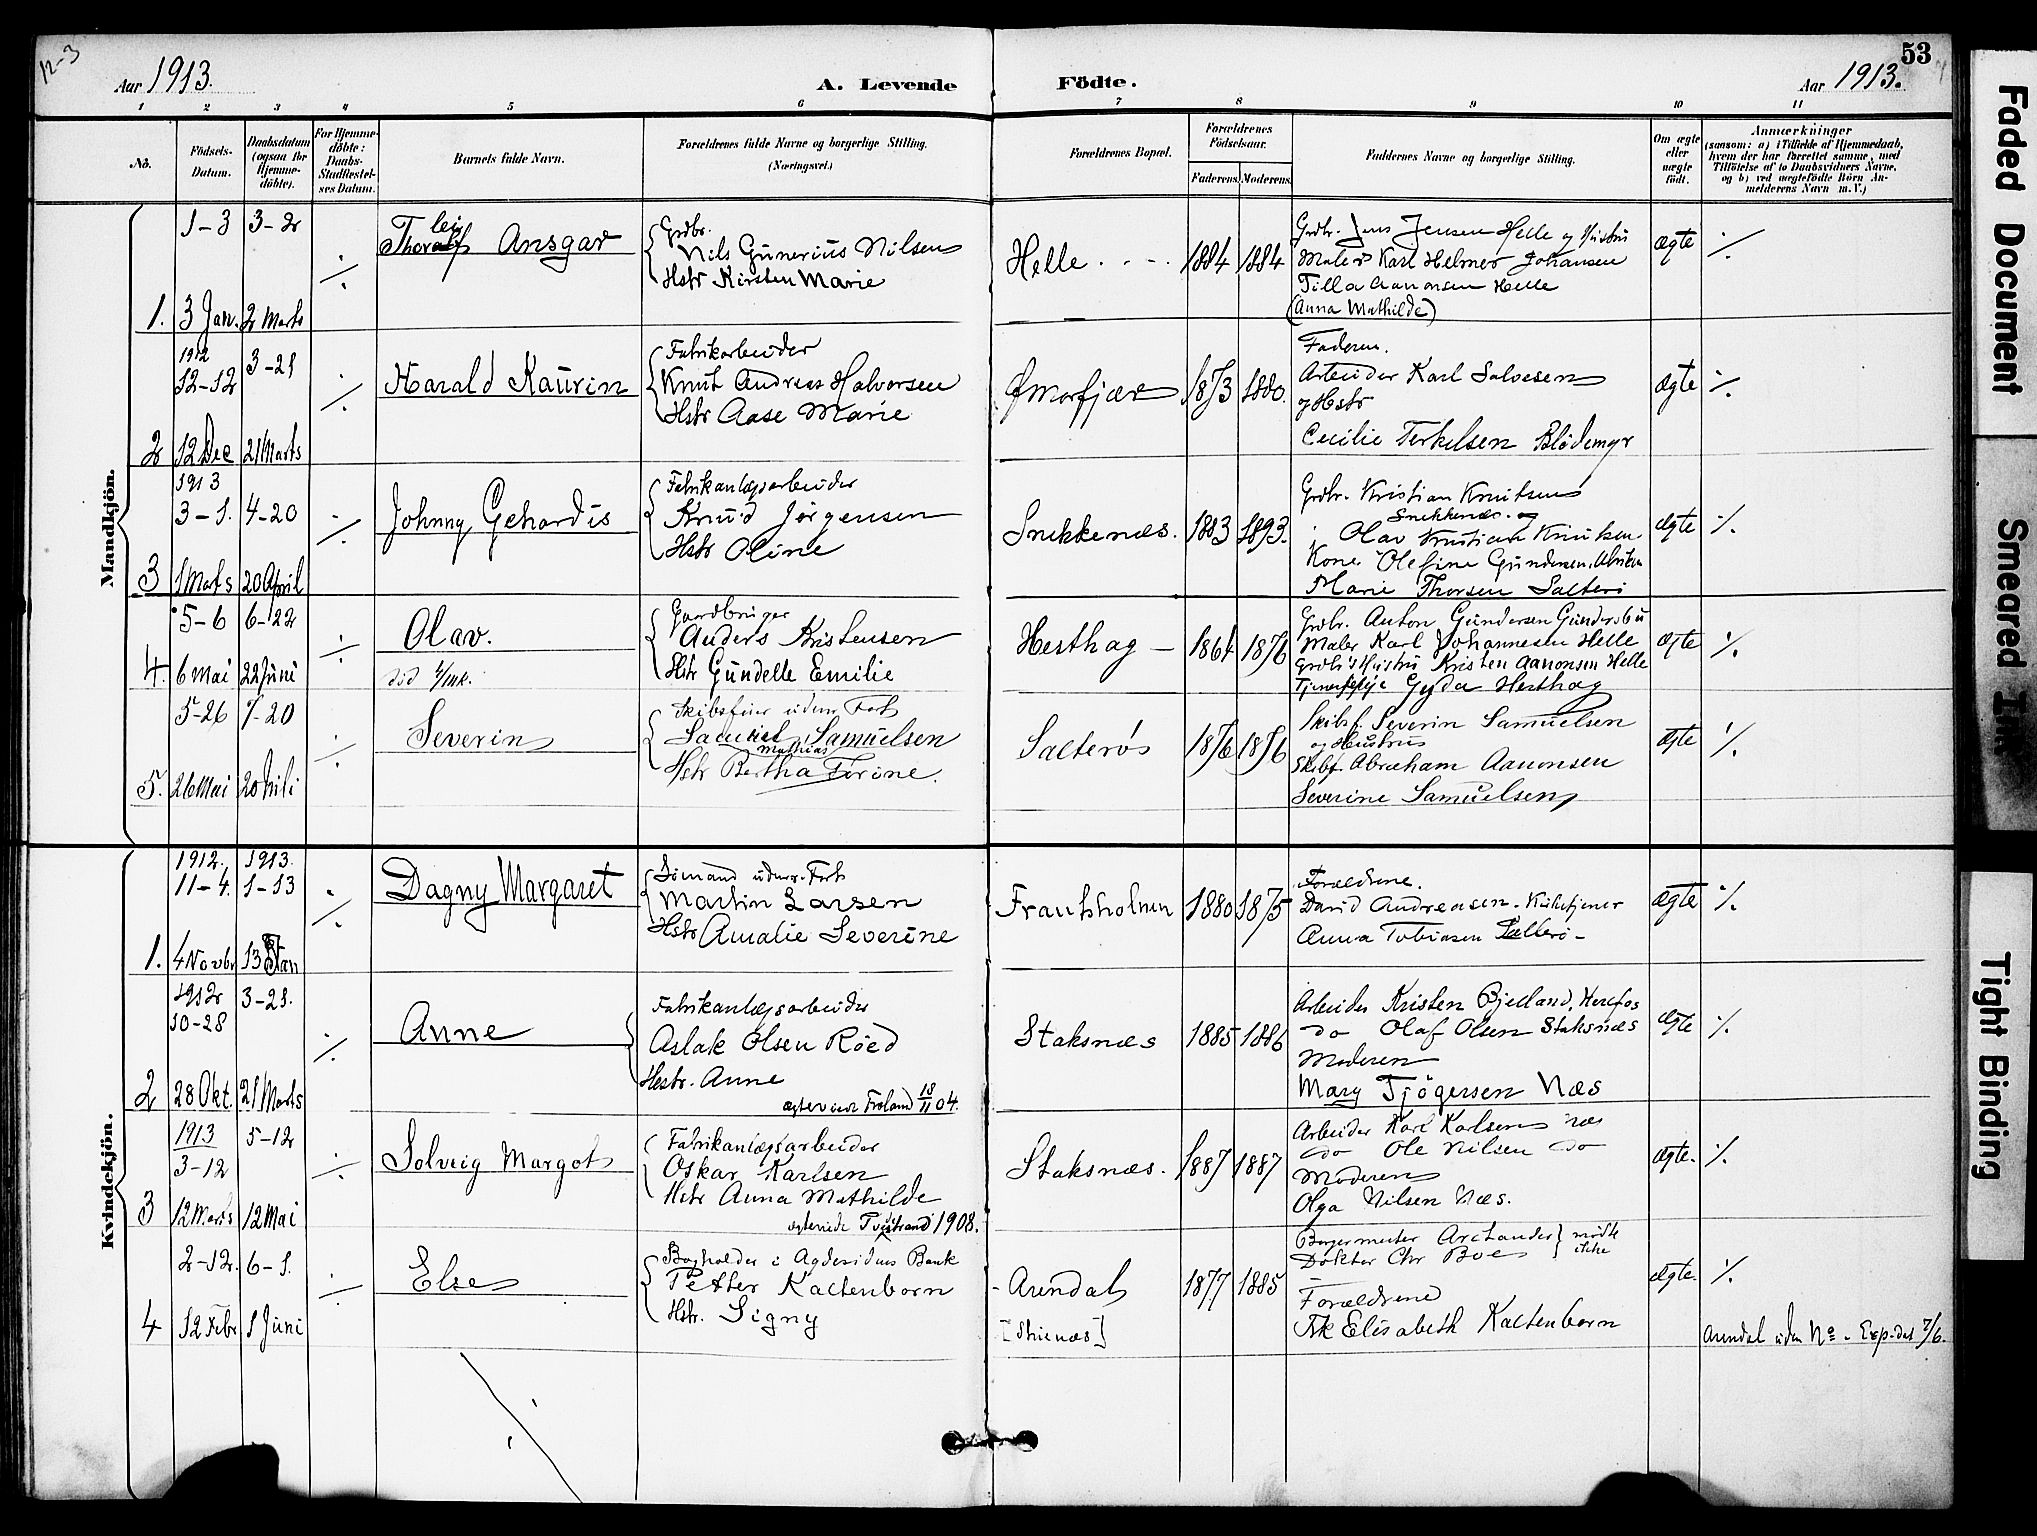 12-3
53
Aar 1913.
A. Levende Födte.
Aar 1913.
1 2 3 4 5 6 7 8 9 10 11
No.
Födsels-Datum.
Daabsdatum (ogsaa for Hjemme-döbte).
For Hjemme-döbte: Daabs-Stadfæstel-ses Datum.
Barnets fulde Navn.
Forældrenes fulde Navne og borgerlige Stilling.
(Næringsvei.)
Forældrenes Bopæl.
Forældrenes Födselsaar.
Faderens. Moderens.
Faddernes Navne og borgerlige Stilling.
Om ægte eller uægte födt.
Anmærkninger
(saasom: a) i Tilfælde af Hjemmedaab, hvem der har forrettet samme, med Tilföielse af to Daabsvidners Navne, og b) ved uægtefödte Börn An-melderens Navn m. V.)
Mandkjön.
1. 1-3 3-2
3 Jan. 2 Marts
Thoralf leif Ansgar
Grdbr.
Nils Gunerius Nilsen
Hstr Kirsten Marie
Helle
1884 1884
Grdbr. Jens Jensen Helle og Hustru
Maler Karl Helmer Johansen
Tilla Aanonsen Helle
(Anna Mathilde)
Ægte
2 1912
12-12 3-21
12 Dec 21 Marts
Harald Kaurin
Fabrikarbeider
Knut Andreas Halvorsen
Hstr Aase Marie
1873 1880.
Faderen.
Arbeider Karl Salvesen
og Hstr
Cecilie Terkelsen Blödemyr
Ægte
3 1913
3-1. 4-20
1 Marts 20 April
Johnny Gehardis
Fabrikanlægsarbeider
Knud Jörgensen
Hstr Oline
Snekkenæs.
1883 1893.
Grdbr. Kristian Knutsen
Snekkenæs og
Olav Kristian Knutsen
Kone Olefine Gundersen
Marie Thorsen Salterö
Ægte
4. 5-6 6-22
6 Mai 22 Juni
Olav.
Gaardbruger
Anders Kristensen
Hstr Gundelle Emilie
Hesthag
1864 1876
Grdbr. Anton Gundersen Gundersbu
Maler Karl Johannesen Helle
Grdbr's Hustru Kristen Aanonsen Helle
Tjenestepige Gyda Hesthag
Ægte
5. 5-26 7-20
26 Mai 20 Juli
Severin
Skibsförer udenr Fart
Samuel Samuelsen
Mathias
Hstr Bertha Torine.
Salterös
1876 1876
Skibsf. Severin Samuelsen
og Hustru
Skibsf. Abraham Aanonsen
Severine Samuelsen
Ægte
Kvindekjön.
1. 1912. 1913.
11-4. 1-13
4 Novbr 13 Jan
Dagny Margaret
Sömand udenr. Fart
Martin Larsen
Hstr Amalie Severine
Frantsholmen
1880 1875
Forældrene.
David Andreasen. Kirketjener
Anna Tobiasen Salterö
Ægte
2 1912 3-21.
10-28
28 Okt. 21 Marts
Anne
Fabrikanlægsarbeider
Aslak Olsen Röed
Hustr. Anne
ægteviede Froland 18/11 04.
Staksnæs
1885 1886
Arbeider Kristen Bjelland. Herefos
do Olaf Olsen Staksnæs
Moderen
Mary Tjögersen Næs
Ægte
3 1913 5-12
3-12
12 Marts 12 Mai
Solveig Margot
Fabrikanlægsarbeider
Oskar Karlsen
Hstr Anna Mathilde
ægteviede Tvedestrand 1908.
Staksnæs.
1887 1887
Arbeider Karl Karlsen Næs
do Ole Nilsen do
Moderen
Olga Nilsen Næs.
Ægte.
4 2-12. 6-1.
12 Febr 1 Juni
Else
Bogholder i Agdesidens Bank
Petter Kaltenborn
Hstr. Signy
Arendal
[Strienæs]
1877 1885
Borgermester Arctander } mødte
Doktor Chr Boe } ikke
Forældrene
Frk Elisabeth Kaltenborn
Ægte.
Arendal uden No. Exp. det 7/6.
Faded Document
Smeared Ink
Tight Binding